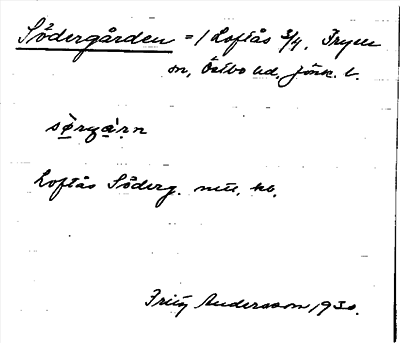 Södergården = 1 Loftås 3/4, Tryserum
sn, Östbo hd, Jönk. l.
sø̀rgà̱rn
Loftås Söderg. mtl. kb.
Fritz Andersson 1930.